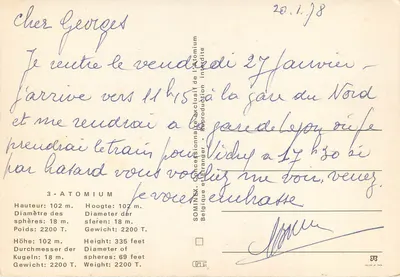 20.1.78
Cher Georges
Je rentre le vendredi 27 janvier -
j'arrive vers 11h15 à la gare du Nord
et me rendrai a la gare de Lyon où je
prendrai le train pour Vichy a 17h30 si
par hasard vous vouliez me voir, venez.
Je vous embrasse
3 - ATOMIUM
Hauteur: 102 m.
Diamètre des
sphères: 18 m.
Poids: 2200 T.
Hoogte: 102 m.
Diameter der
sferen: 18 m.
Gewicht: 2200 T.
Höhe: 102 m.
Durchmesser der
Kugeln: 18 m.
Gewicht: 2200 T.
Height: 335 feet
Diameter of
spheres: 69 feet
Weight: 2200 T.
SOMINEX, Concessionnaire exclusif de l'Atomium
Belgique et étranger - Reproduction interdite